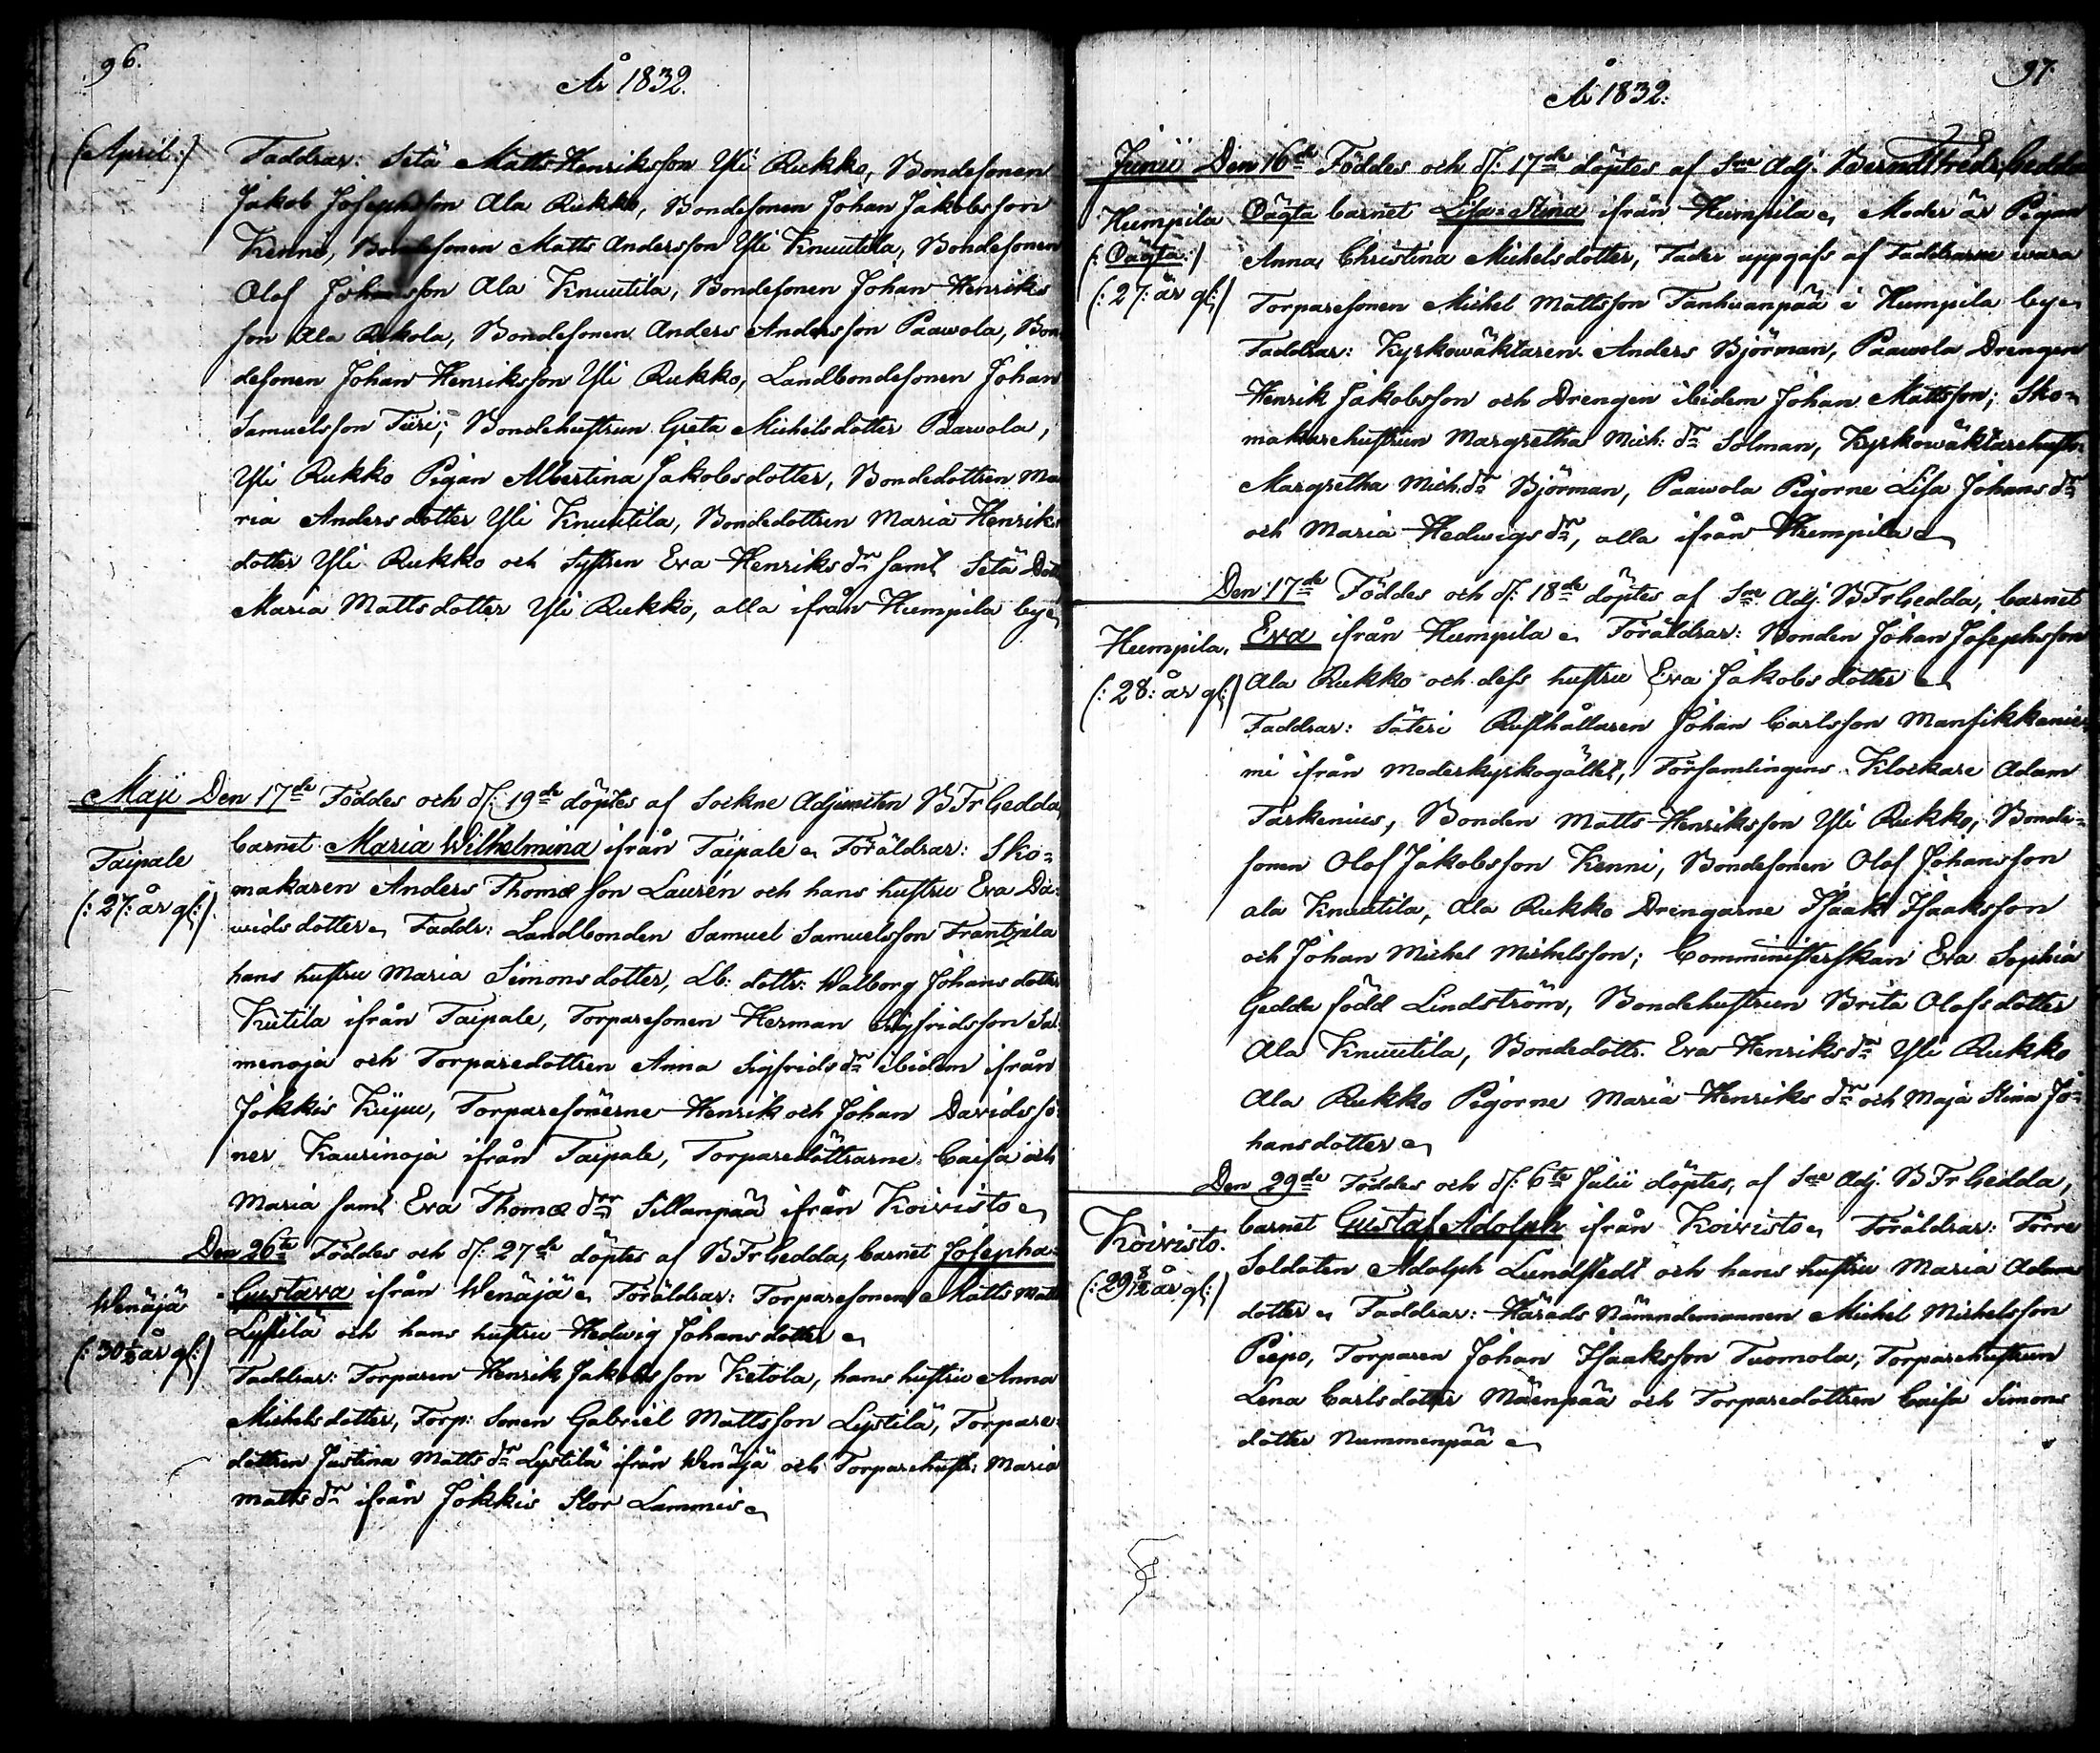 96.
År 1832.
(:April:) Faddrar: Setä Matts Henriksson Yli Rukko, Bondesonen
Jakob Josephsson Ala Rukko, Bondesonen Johan Jakobsson
Kenni, Bondesonen Matts Andersson Yli Knuutila, Bondesonen
Olof Johansson Ala Knuutila, Bondesonen Johan Henriks
son Ala Rekola, Bondesonen Anders Andersson Paawola, Bon
desonen Johan Henriksson Yli Rukko, Landbondesonen Johan
Samuelsson; Bondehustrun Greta Michelsdotter Paawola,
Yli Rukko Pigan Albertina Jakobsdotter, Bondedottren Ma
ria Andersdotter Yli Knuutila, Bondedottren Maria Henriks
dotter Yli Rukko och Systren Eva Henriksdr samt Setä Dott
Maria Mattsdotter Yli Rukko, alla ifrån Humpila bye
Maji Den 17de Föddes och d: 19de döptes af Sockne Adjuncten BFr Gedda,
Taipale barnet Maria Wilhelmina ifrån Taipale Föräldrar: Sko=
(: 27: år gl:) makaren Anders Thomæson Laurén och hans hustru Eva Da=
widsdotter Faddr: Landbonden Samuel Samuelsson Frantzila
hans hustru Maria Simonsdotter, Lb: dottr: Walborg Johansdotter
Kutila ifrån Taipale, Torparesonen Herman Sigfridsson Sal
menoja och Torparedottren Anna Sigfridsdr ibidem ifrån
Jokkis Kiipu, Torparesönerne Henrik och Johan Davidssö
ner Kaurinoja ifrån Taipale, Torparedöttrarne Caisa och
Maria samt Eva Thomædrr Sillanpää ifrån Koivisto
Den 26te Föddes och d: 27de döptes af BFr Gedda, barnet Josepha=
Wenäjä Gustava ifrån Wenäjä Föräldrar: Torparesonen Matts Matts
Lystilä och hans hustru Hedwig Johansdotter
(: 30½ år gl:)
Faddrar: Torparen Henrik Jakobsson Ketola, hans hustru Anna
Michelsdotter, Torp: Sonen Gabriel Mattsson Lystilä, Torpare=
dottren Justina Mattsdr Lystilä ifrån Wenäjä och Torparehustr: Maria
Mattsdr ifrån Jokkis Stor Lammis
97.
År 1832.
Junii Den 16de Föddes och d: 17de döptes af Sne Adj. Berndt Fredr. Gedda
Humpila Oägta barnet Lisa=Stina ifrån Humpila Moder är Pigan
(: Oägta:) Anna Christina Michelsdotter, Fader uppgafs af Faddrarne wara
(: 27: år gl:) Torparesonen Michel Mattsson Tanhuanpää i Humpila bye
Faddrar: Kyrkowäktaren Anders Björman, Paawola Drengen
Henrik Jakobsson och Drengen ibidem Johan Mattsson; Sko=
makarehustrun Margretha Mich: dr Solman, Kyrkowäktarehustr:
Margretha Mich.dr Björman, Paawola Pigorne Lisa Johansdr
och Maria Hedwigsdr, alla ifrån Humpila
Den 17de Föddes och d: 18de döptes af Sne Adj. BFr Gedda, barnet
Humpila. Eva ifrån Humpila Föräldrar: Bonden Johan Josephsson
(: 28: år gl:) Ala Rukko och dess hustru Eva Jakobsdotter
Faddrar: Säteri Rusthållaren Johan Carlsson Mansikkanie=
mi ifrån Moderkyrkogället, Församlingens Klockare Adam
Tarkenius, Bonden Matts Henriksson Yli Rukko, Bonde=
sonen Olof Jakobsson Kenni, Bondesonen Olof Johansson
ala Knuutila, Ala Rukko Drengarne Isaak Isaaksson
och Johan Michel Michelsson; Comministerskan Eva Sophia
Gedda född Lindström, Bondehustrun Brita Olofsdotter
Ala Knuutila, Bondedottr. Eva Henriksdr Yli Rukko
Ala Rukko Pigorne Maria Henriksdr och Maja Stina Jo=
hansdotter
Den 29de Föddes och d: 6te Julii döptes, af Sne Adj. BFr Gedda,
Koivisto. barnet Gustaf Adolph ifrån Koivisto Föräldrar: Förre
(: 29 8/12 år gl:) Soldaten Adolph Lundstedt och hans hustru Maria Adams
dotter Faddrar: Härads Nämndemannen Michel Michelsson
Piepo, Torparen Johan Isaaksson Tuomola, Torparehustrun
Lena Carlsdotter Mäenpää och Torparedottren Caisa Simons
dotter Nummenpää